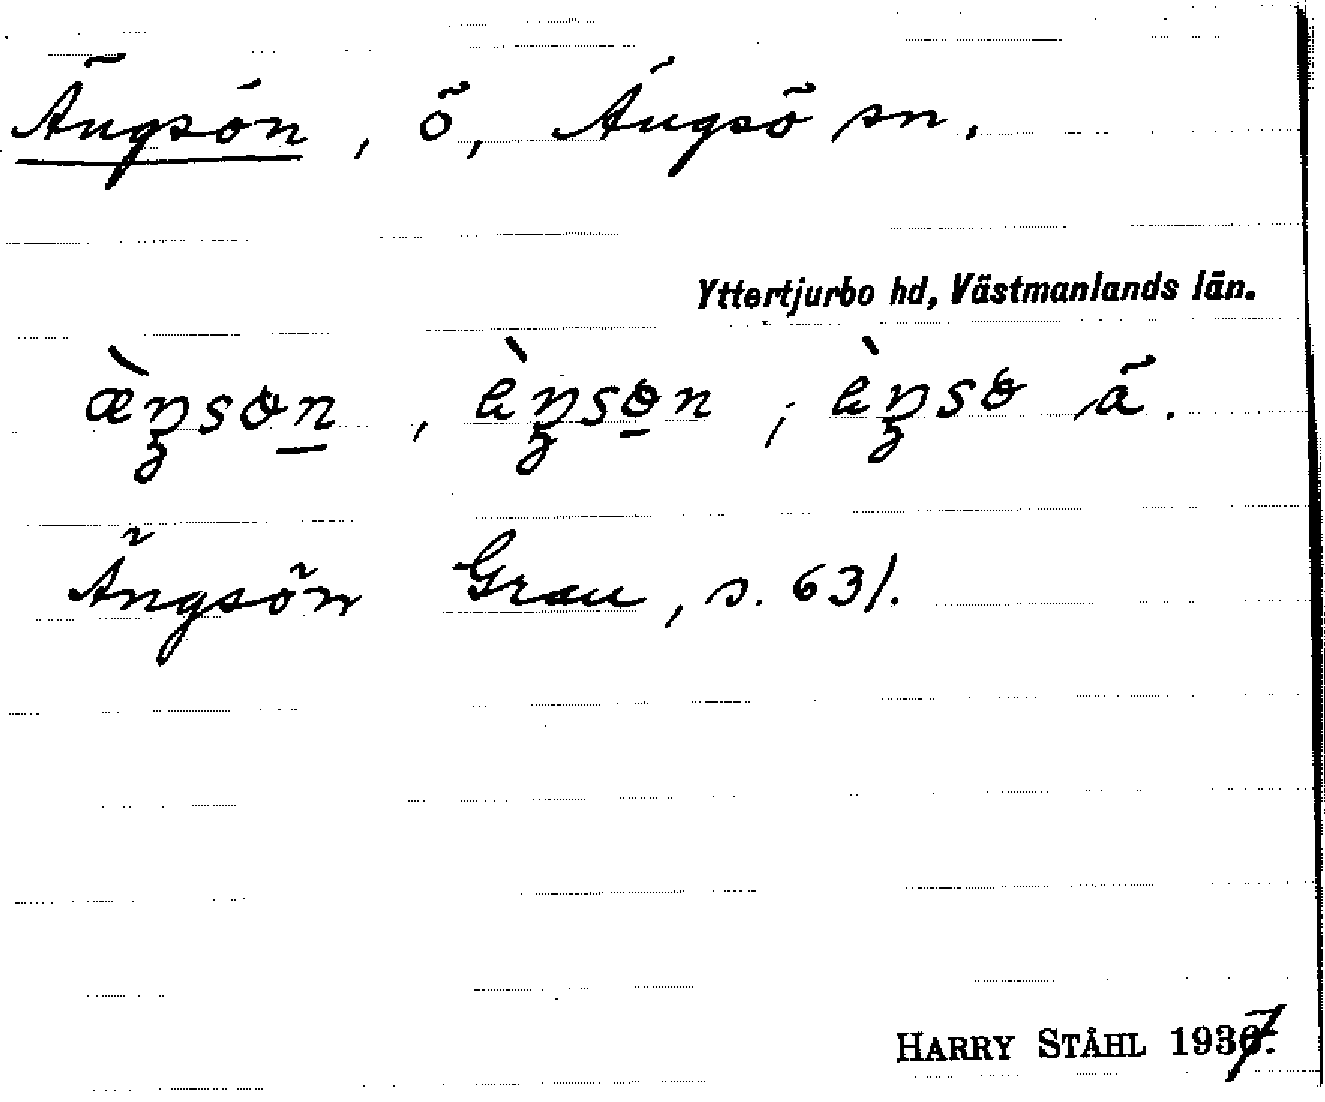 Ängsön, ö, Ängsö sn.
Yttertjurbo hd, Västmanlands län.
æ̀ŋsɵn̲, èŋsɵ̲n; èŋsɵ ä.
Ängsön Grau, s. 631.
HARRY STÅHL 1937.